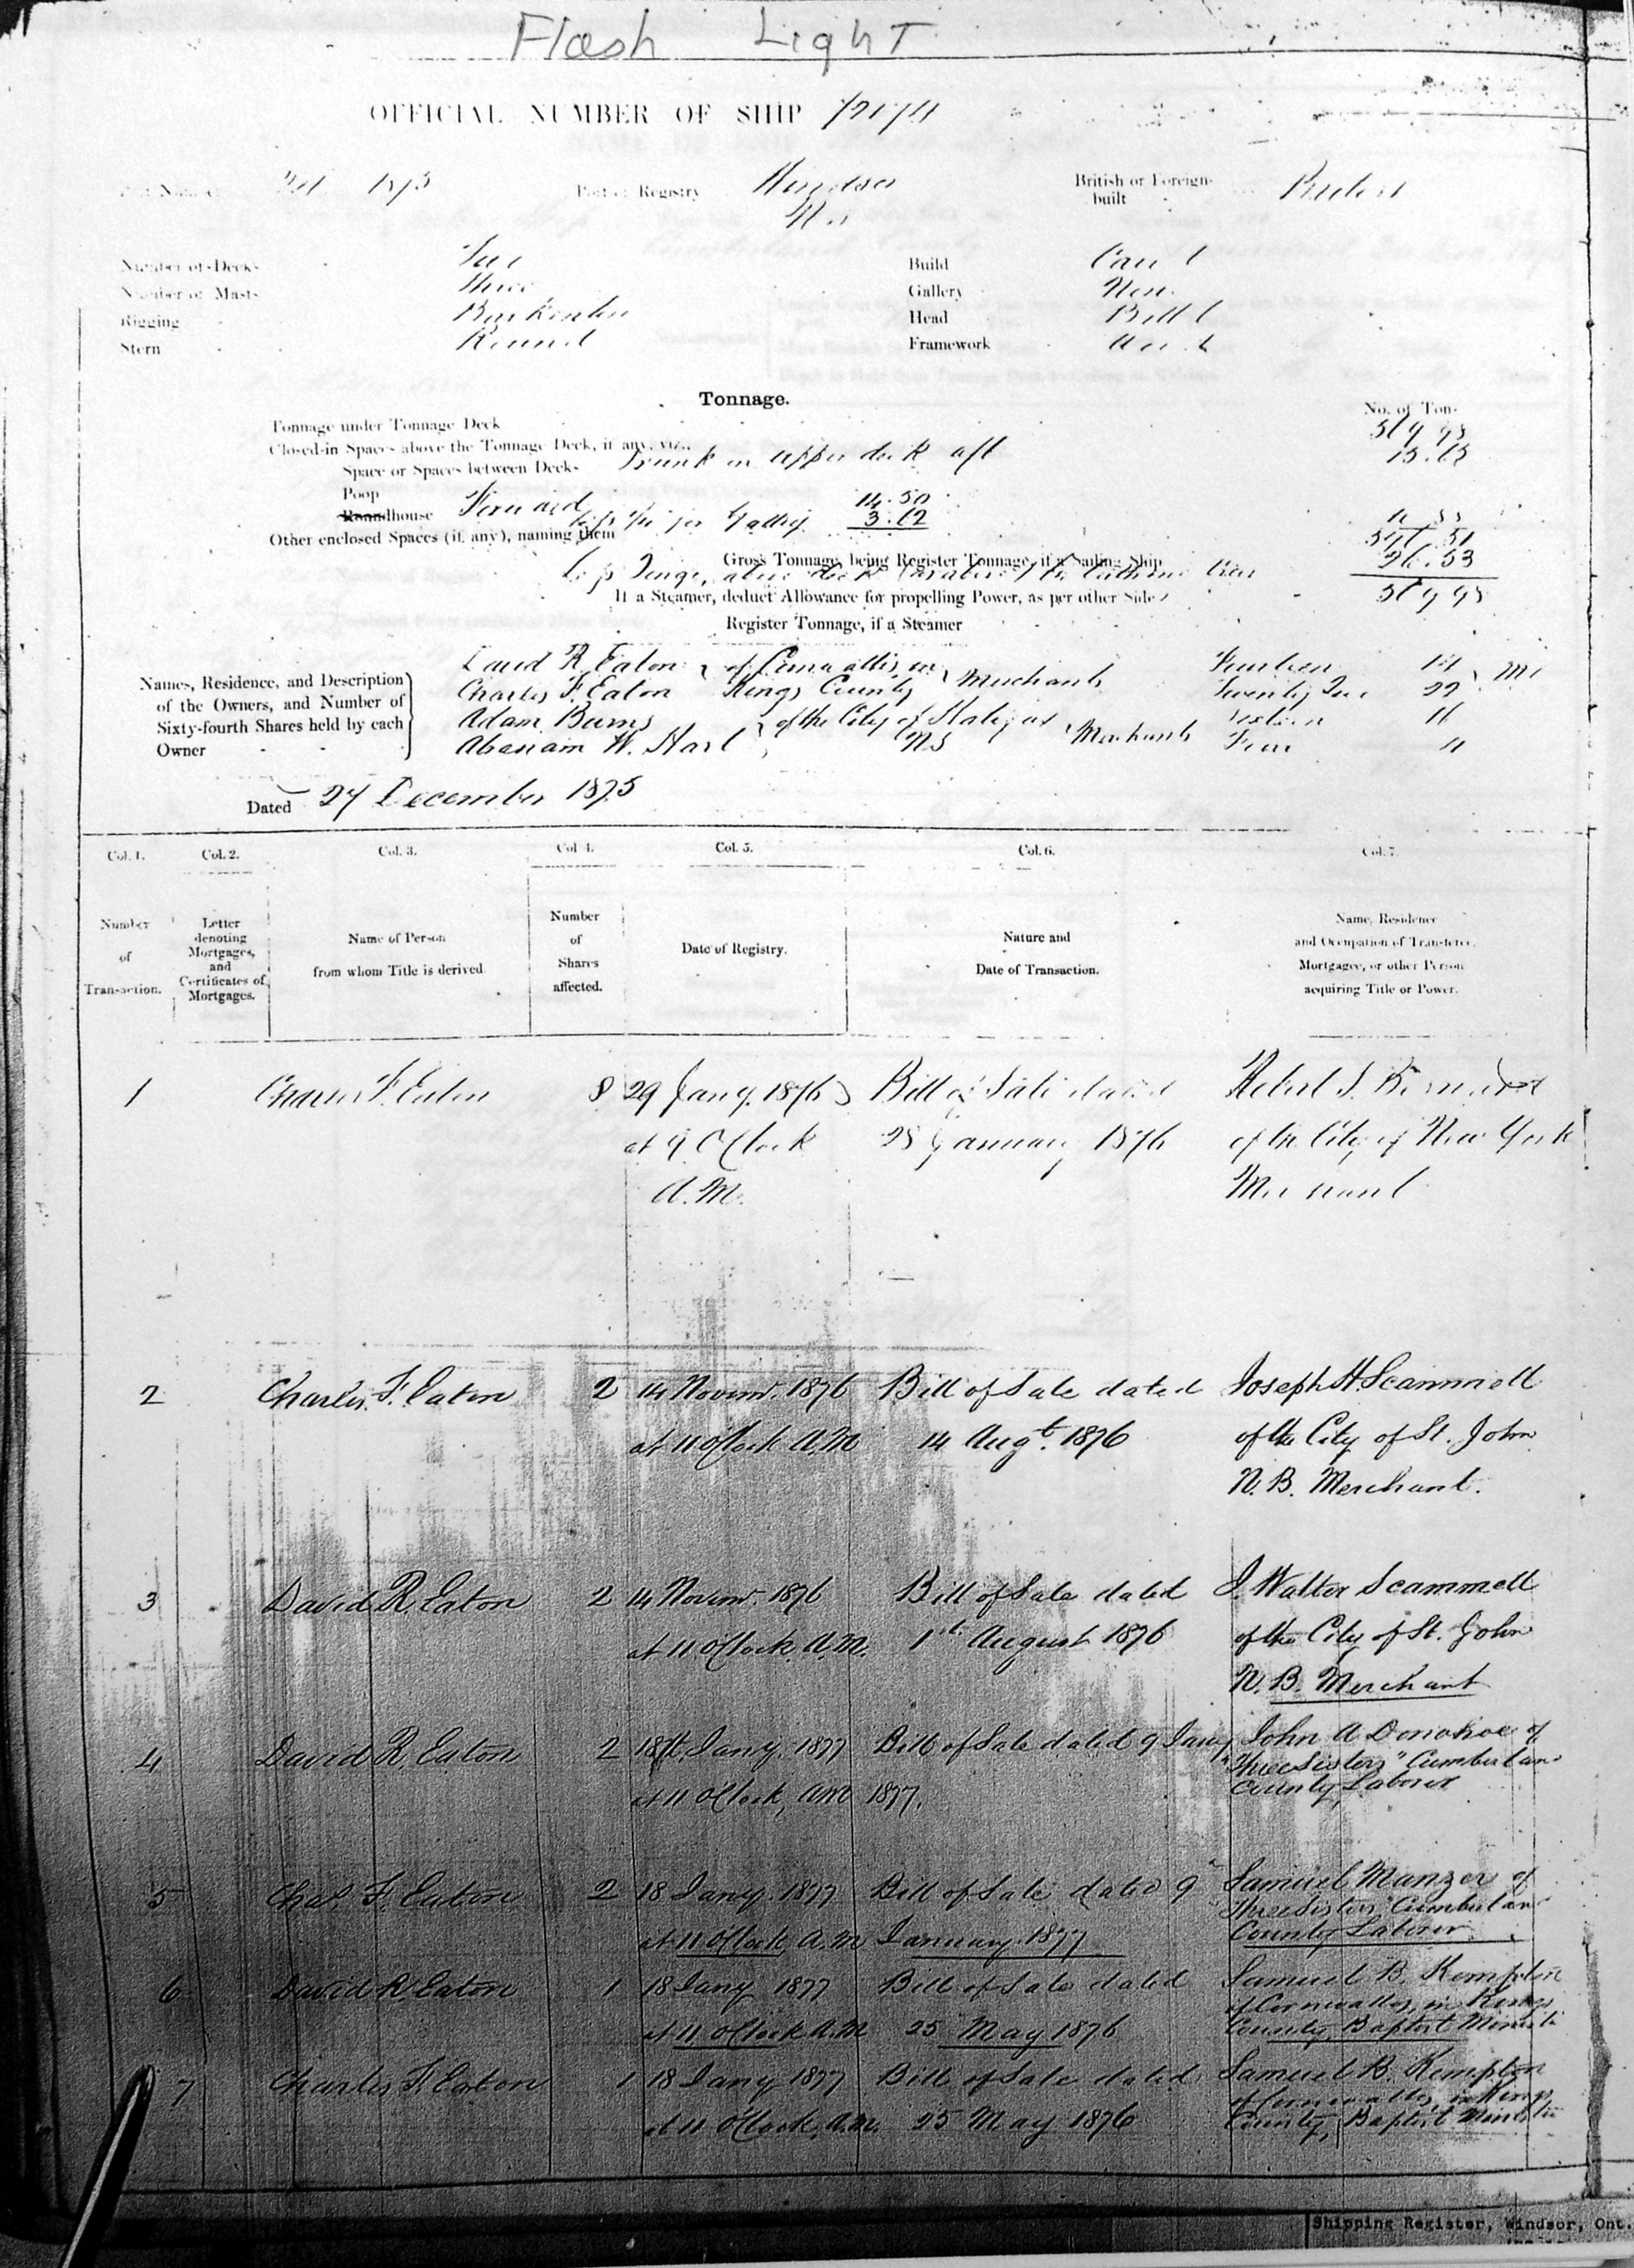 Flash Light
OFFICIAL NUMBER OF SHIP
1875 Port of Registry Windsor British or Foreign-built British
NS
Number of Decks Build
Number of Masts Three Gallery None
Rigging Barkentine Head Billet
Stern Round Framework Wood
Tonnage.
No. of Tons
Tonnage under Tonnage Deck
Closed-in Spaces above the Tonnage Deck, if any, viz.
Space or Spaces between Decks Trunk on upper deck aft
Poop 14.50
Roundhouse Forward 3.12
Other enclosed Spaces (if any), naming them
Gross Tonnage, being Register Tonnage, if a Sailing Ship 26.53
If a Steamer, deduct Allowance for propelling Power, as per other Side
Register Tonnage, if a Steamer
Names, Residence, and Description of the Owners, and Number of Sixty-fourth Shares held by each Owner
David R. Eaton of Cornwallis in Merchants Fourteen 14
Charles F. Eaton Kings County Twenty Two 22
Adam Burns of the City of Halifax Sixteen
Abraham W. Hart NS Merchants Four
Dated 27 December 1875
Col. 1. Col. 2. Col. 3. Col. 4. Col. 5. Col. 6. Col. 7.
Number of Transaction.
Letter denoting Mortgages, and Certificates of Mortgages.
Name of Person from whom Title is derived
Number of Shares affected.
Date of Registry.
Nature and Date of Transaction.
Name, Residence and Occupation of Transferee, Mortgagee, or other Person acquiring Title or Power.
1 Charles F. Eaton 8 29 Jany. 1876 Bill of Sale dated
at 9 O'Clock 28 January 1876 of the City of New York
A.M. Merchant
2 Charles F. Eaton 2 14 Novemr. 1876 Bill of Sale dated Joseph H. Scammell
at 11 o'Clock A.M 14 Augt. 1876 of the City of St. John
N. B. Merchant.
3 David R. Eaton 2 14 Novemr. 1876 Bill of Sale dated J. Walter Scammell
at 11 O'Clock A.M. 1st August 1876 of the City of St. John
N. B. Merchant
4 David R. Eaton 2 18th Jany. 1877 Bill of Sale dated 9 Jany John A Donohoe of
"Three Sisters" Cumberland
at 11 O'Clock, AM 1877. County, Laborer
5 Chas. F. Eaton 2 18 Jany. 1877 Bill of Sale dated 9 Samuel Manzer of
"Three Sisters" Cumberland
at 11 O'Clock, A.M January 1877 County Laborer
6 David R. Eaton 1 18 Jany 1877 Bill of Sale dated Samuel B. Kempton
of Cornwallis, in Kings
at 11 o'Clock A.M 25 May 1876 County, Baptist Minister
7 Charles F. Eaton 1 18 Jany 1877 Bill of Sale dated Samuel B. Kempton
of Cornwallis, in Kings
at 11 O'Clock, A.M. 25 May 1876 County, Baptist Minister
Shipping Register, Windsor, Ont.